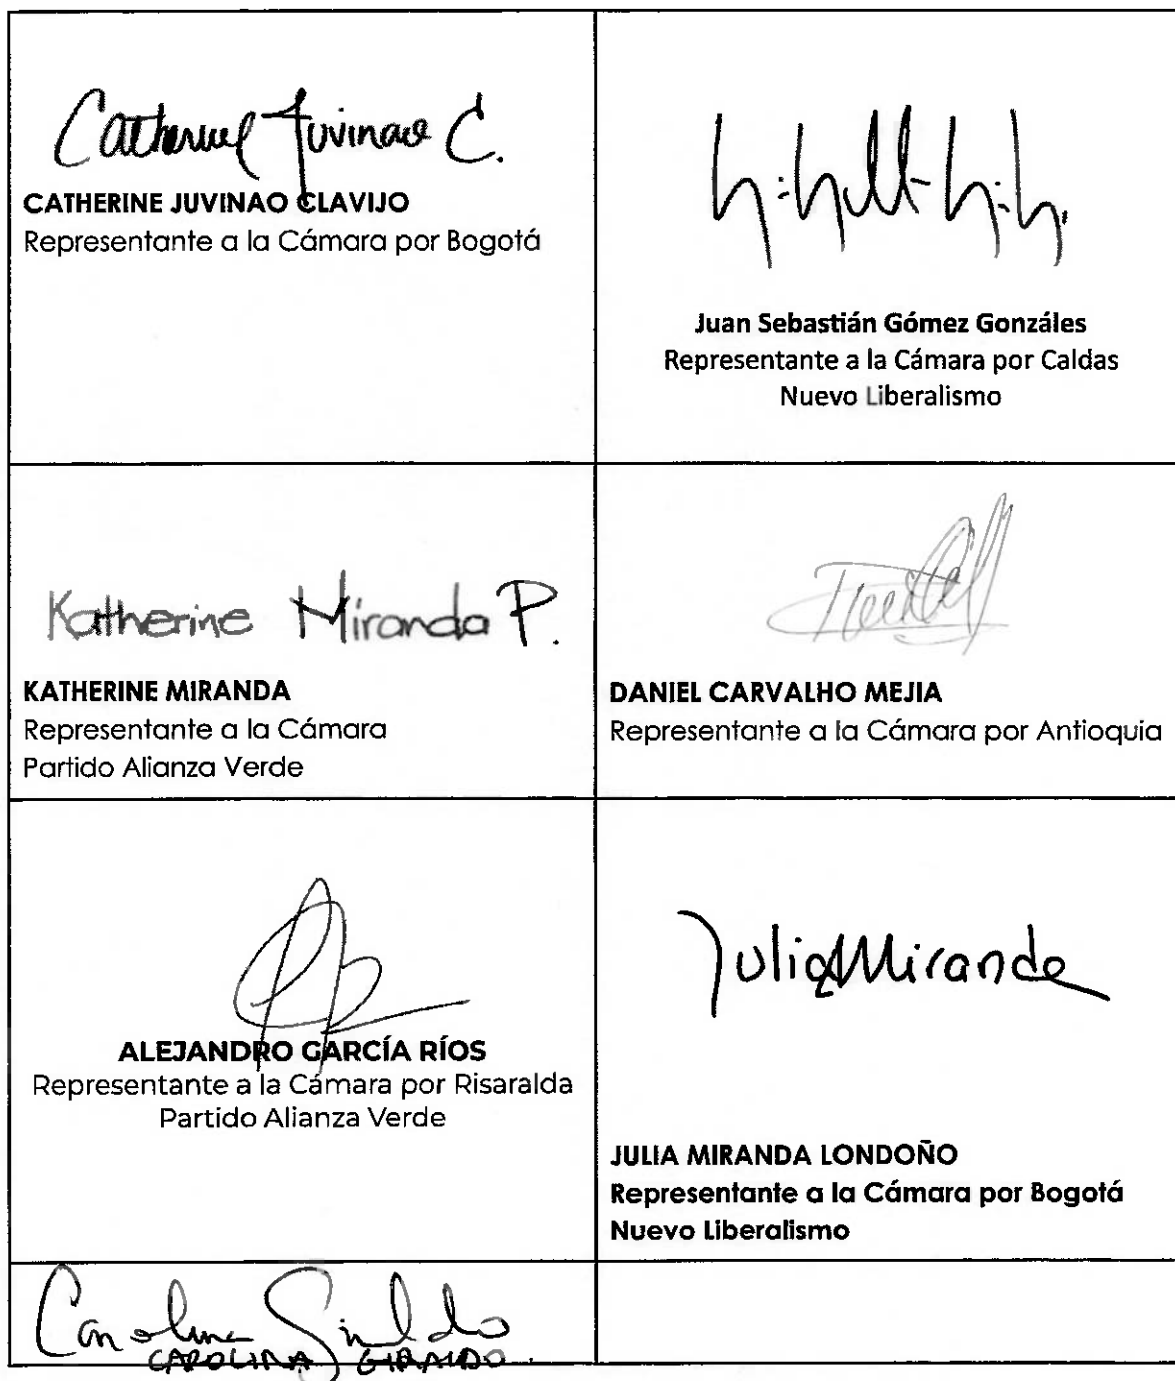 Catherine Juvinao C.
CATHERINE JUVINAO CLAVIJO
Representante a la Cámara por Bogotá
Juan Sebastián Gómez Gonzáles
Representante a la Cámara por Caldas
Nuevo Liberalismo
Katherine Miranda P.
KATHERINE MIRANDA
Representante a la Cámara
Partido Alianza Verde
DANIEL CARVALHO MEJIA
Representante a la Cámara por Antioquia
ALEJANDRO GARCÍA RÍOS
Representante a la Cámara por Risaralda
Partido Alianza Verde
Julia Miranda
JULIA MIRANDA LONDOÑO
Representante a la Cámara por Bogotá
Nuevo Liberalismo
Carolina Giraldo
CAROLINA GIRALDO.